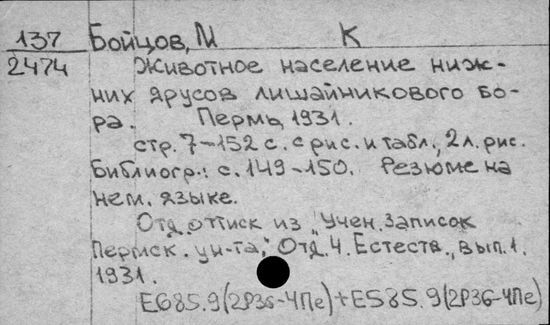 137 Бойцов, М К
2474 Животное население ниж-
них ярусов лишайникового бо-
ра. Пермь, 1931.
стр. 7-152 с. с рис. и табл., 2 л. рис.
Библиогр.: с. 149-150. Резюме на
нем. языке.
Отд. оттиск из "Учен. Записок
Пермск. ун-та," Отд. 4. Естеств., вып. 1.
1931.
Е685.9(2Р36-4Пе)+Е585.9(2Р36-4Пе)